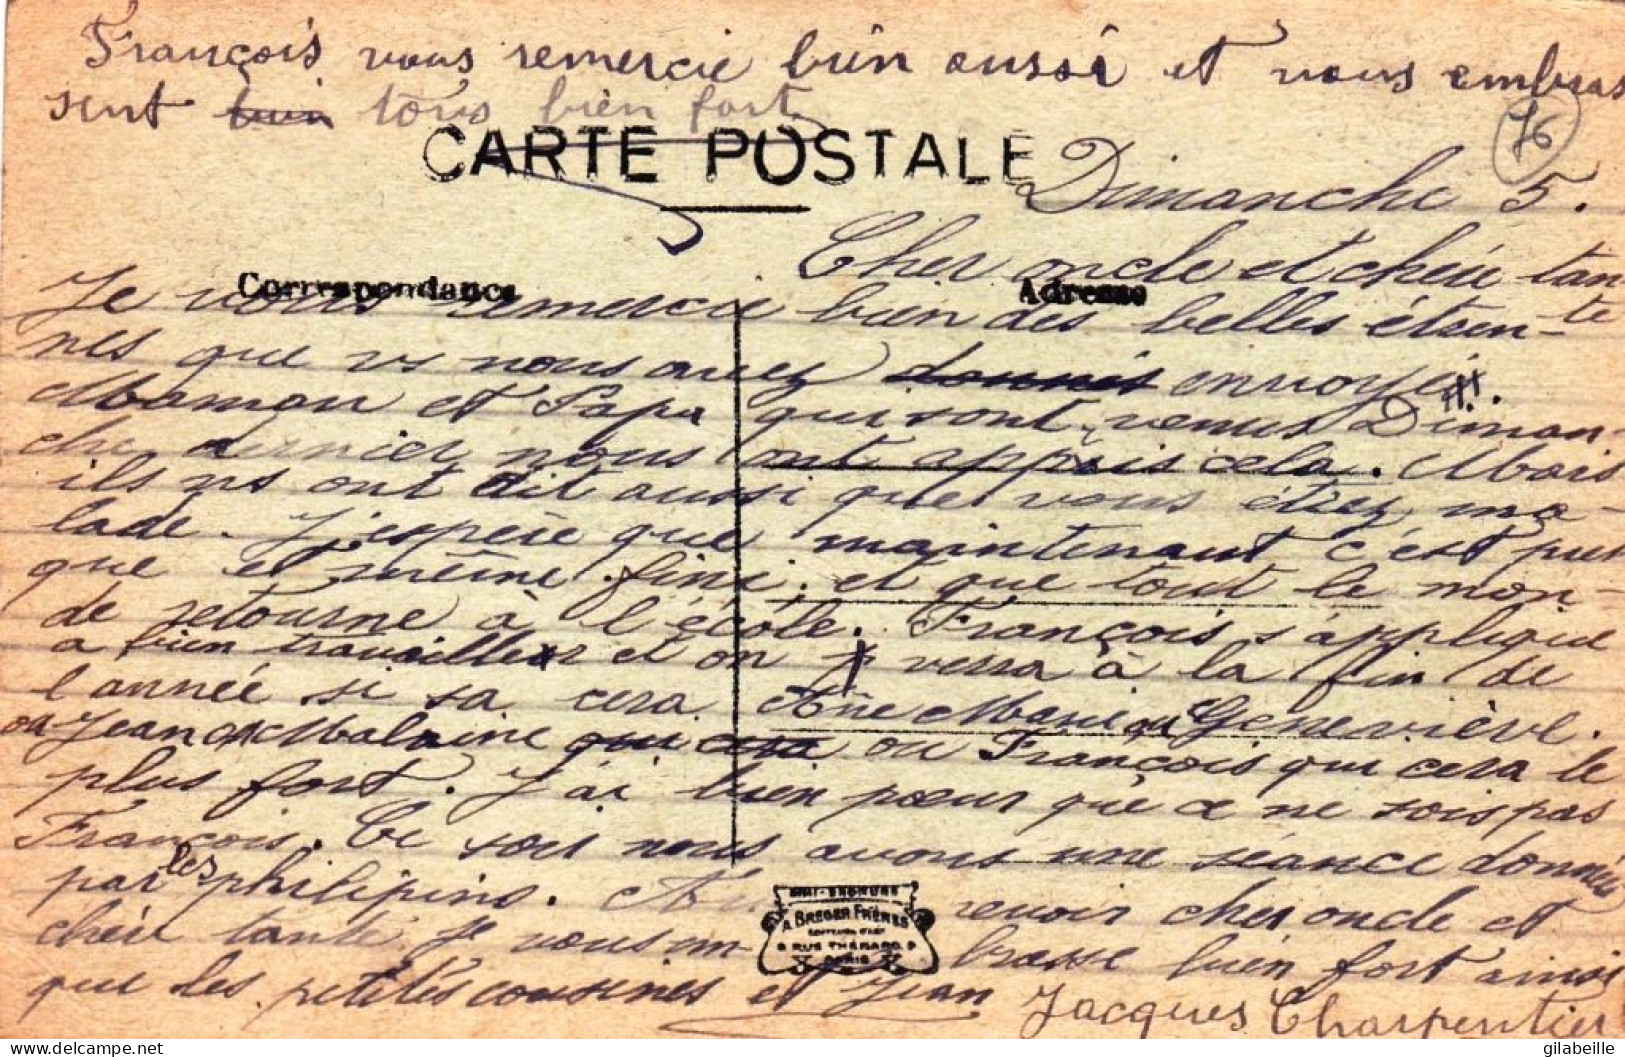 François vous remercie bien aussi et vous embras
sent bien tous bien fort.
76
CARTE POSTALE
Dimanche 5.
Cher oncle et chère tan
te
Correspondance
Adresse
Je vous remercie bien des belles étren-
nes que vs nous avez donnés envoyé.
Maman et Papa qui sont venus Diman-
che dernier nous ont appris cela. Mais
ils ns ont dit aussi que vous étiez ma-
lade. J'espère que maintenant c'est pres
que et même fini. et que tout le mon-
de retourne à l'école. François s'applique
a bien travailler et on verra à la fin de
l'année si sa cera Anne Marie ou Geneviève.
ou Jean ou Malaine qui cera ou François qui cera le
plus fort. J'ai bien pœur que ce ne sois pas
François. Ce soir nous avons une séance donnée
par les philipins. Au revoir cher oncle et
chère tante je vous em- brasse bien fort ainsi
que les petites cousines et Jean.
Jacques Charpentier
SIMI-BRONURE
A. BREGER FRÈRES
9 RUE THÉNARD 9
PARIS
gilabeille